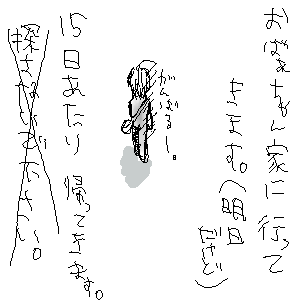 おばあちゃん家に行って
きます。(明日だけど)
がんばるー。
15日あたり 帰ってきます。
探さないでください。